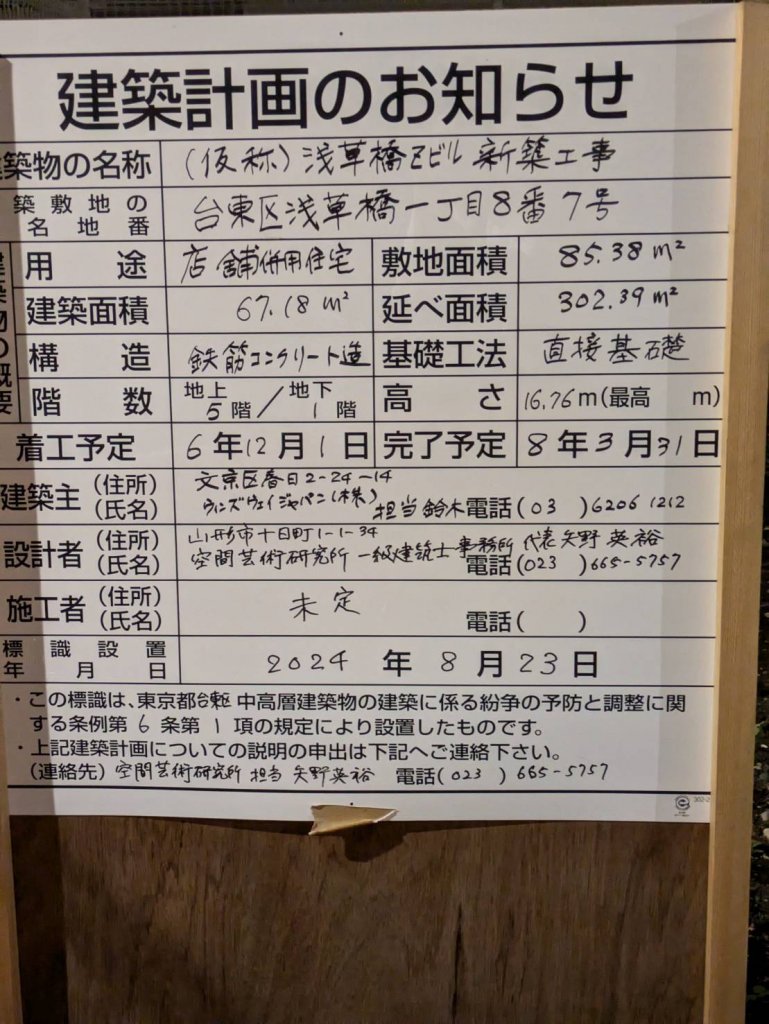 建築計画のお知らせ
建築物の名称 (仮称) 浅草橋Zビル 新築工事
築敷地の 名地番 台東区浅草橋一丁目8番7号
用途 店舗併用住宅 敷地面積 85.38m²
建築面積 67.18m² 延べ面積 302.39m²
構造 鉄筋コンクリート造 基礎工法 直接基礎
階数 地上5階/地下1階 高さ 16.76m(最高 m)
着工予定 6年12月1日 完了予定 8年3月31日
建築主 (住所) 文京区春日2-24-14
(氏名) ウィンズウェイジャパン(株) 担当 鈴木 電話(03)6206 1212
設計者 (住所) 山形市十日町1-1-34
(氏名) 空間芸術研究所 一級建築士事務所 代表 矢野英裕
電話(023)665-5757
施工者 (住所) (氏名) 未定 電話( )
標識設置 年月日 2024年8月23日
・この標識は、東京都台東区 中高層建築物の建築に係る紛争の予防と調整に関
する条例第6条第1項の規定により設置したものです。
・上記建築計画についての説明の申出は下記へご連絡下さい。
(連絡先) 空間芸術研究所 担当 矢野英裕 電話(023)665-5757